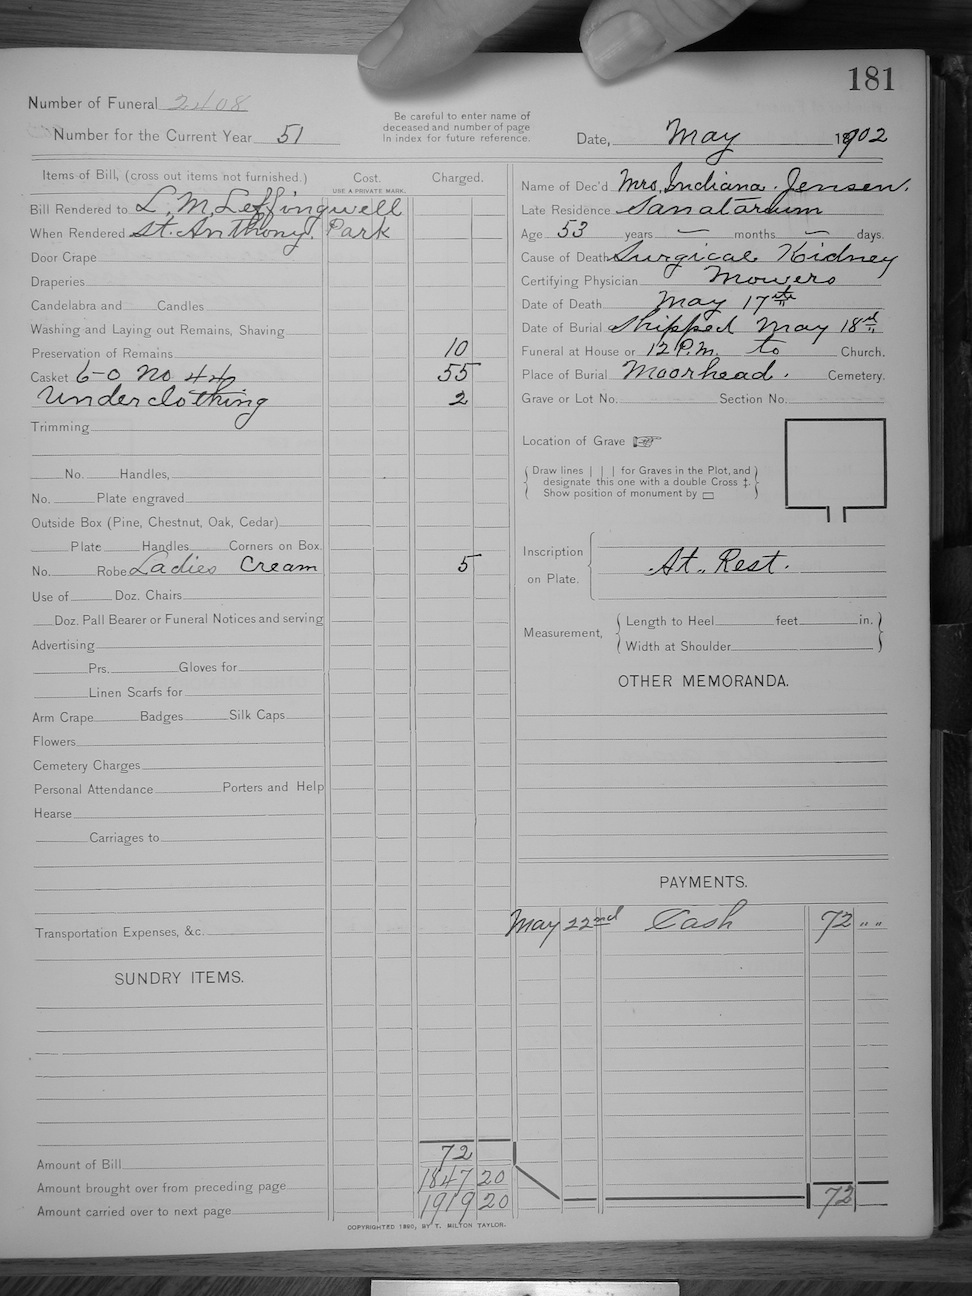 181
Number of Funeral 2408
Number for the Current Year 51
Be carefull to enter name of
deceased and number of page
in index for future reference.
Date, May 1902
Items of Bill, (cross out items not furnished.) Cost. Charged.
USE A PRIVATE MARK.
Bill Rendered to L. M. Leffingwell
When Rendered St. Anthony Park
Door Crape
Draperies
Candelabra and Candles
Washing and Laying out Remains, Shaving
Preservation of Remains 10
Casket 6-0 No 44 55
Underclothing 2
Trimming
No. Handles,
No. Plate engraved
Outside Box (Pine, Chestnut, Oak, Cedar)
Plate Handles Corners on Box.
No. Robe Ladies Cream 5
Use of Doz. Chairs
Doz. Pall Bearer or Funeral Notices and serving
Advertising
Prs. Gloves for
Linen Scarfs for
Arm Crape Badges Silk Caps
Flowers
Cemetery Charges
Personal Attendance Porters and Help
Hearse
Carriages to
Transportation Expenses, &c.
SUNDRY ITEMS.
Amount of Bill 72
Amount brought over from preceding page 1847 20
Amount carried over to next page 1919 20
Name of Dec'd Mrs. Indiana Jensen.
Late Residence Sanatarium
Age 53 years — months — days.
Cause of Death Surgical Kidney
Certifying Physician Mowers
Date of Death May 17th
Date of Burial Shipped May 18th
Funeral at House or 12 P.M. to Church.
Place of Burial Moorhead. Cemetery.
Grave or Lot No. Section No.
Location of Grave
Draw lines | | | for Graves in the Plot, and
designate this one with a double Cross ‡.
Show position of monument by
Inscription
on Plate. At Rest.
Measurement, Length to Heel feet in.
Width at Shoulder
OTHER MEMORANDA.
PAYMENTS.
May 22nd Cash 72 " "
72
COPYRIGHTED 1890, BY T. MILTON TAYLOR.